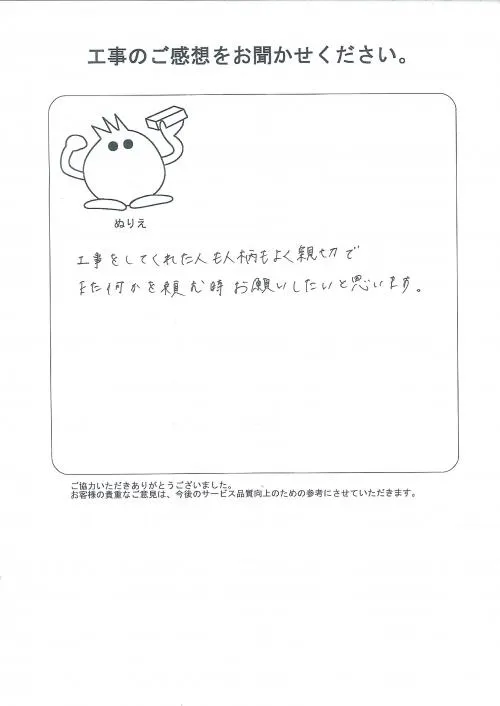 工事のご感想をお聞かせください。
ぬりえ
工事をしてくれた人も人柄もよく親切で
また何かを頼む時お願いしたいと思います。
ご協力いただきありがとうございました。
お客様の貴重なご意見は、今後のサービス品質向上のための参考にさせていただきます。